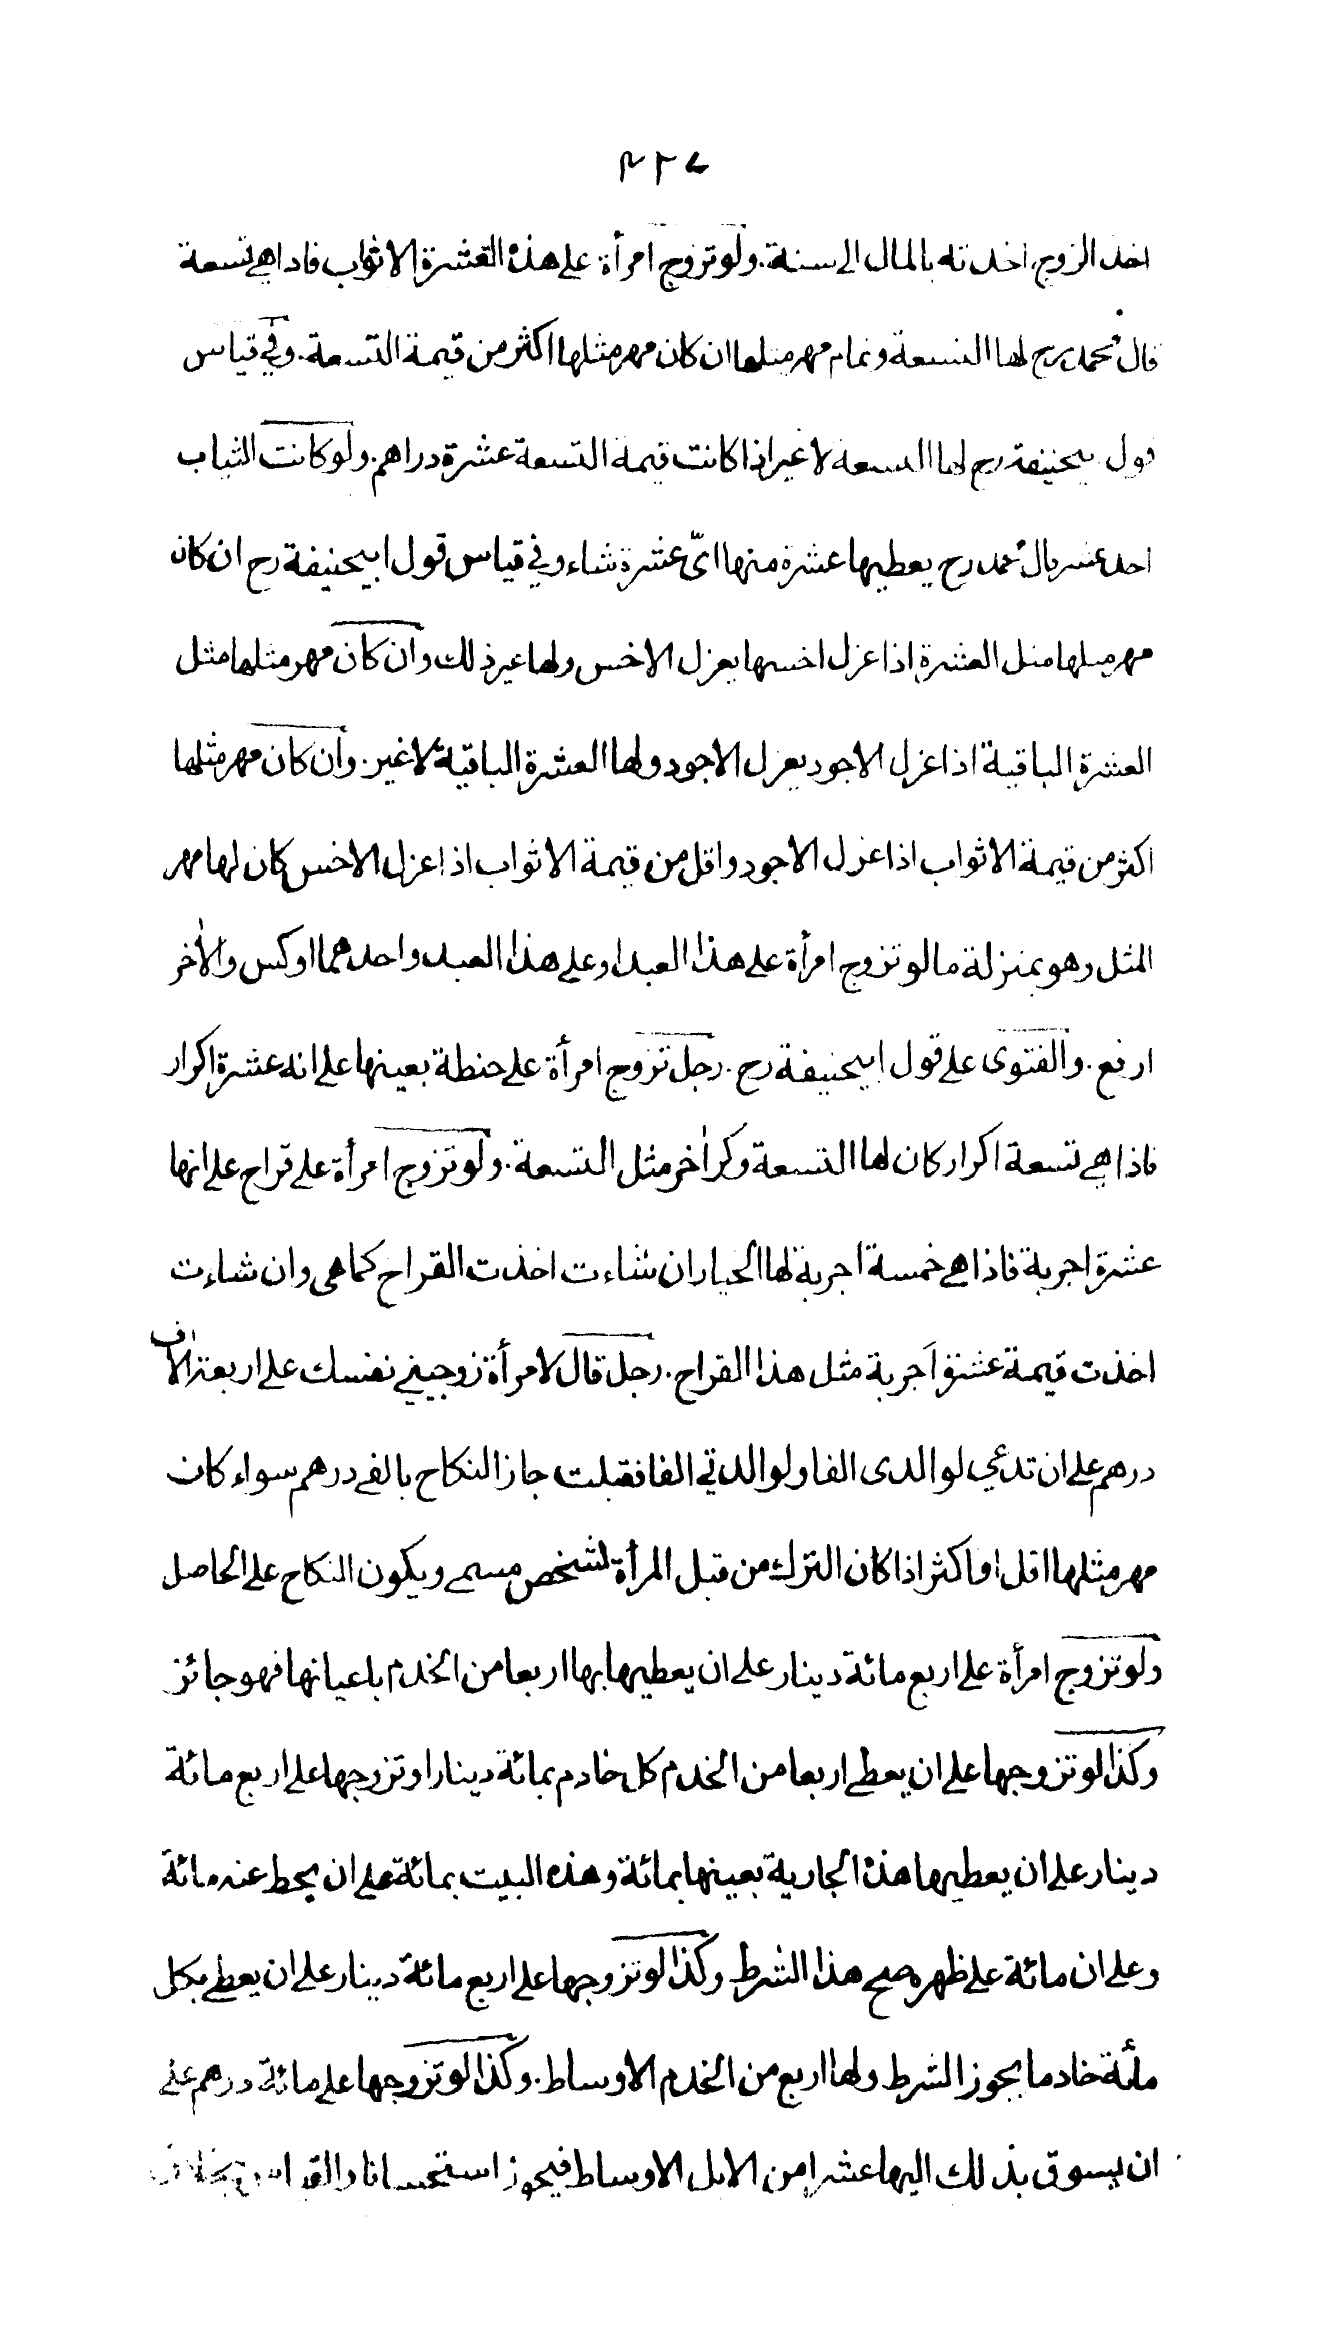 ٣٢٧
اخذ الزوج اخذته بالمال الى سنة. ولو تزوج امرأة على هذه العشرة الاثواب فاذا هي تسعة
قال محمد رح لها التسعة وتمام مهر مثلها ان كان مهر مثلها اكثر من قيمة التسعة. وفي قياس
قول ابيحنيفة رح لها التسعة لا غير اذا كانت قيمة التسعة عشرة دراهم. ولو كانت الثياب
احد عشر قال محمد رح يعطيها عشرة منها اىّ عشرة شاء وفي قياس قول ابيحنيفة رح ان كان
مهر مثلها مثل العشرة اذا عزل اخسها يعزل الاخس ولها غير ذلك وان كان مهر مثلها مثل
العشرة الباقية اذا عزل الاجود يعزل الاجود ولها العشرة الباقية لا غير. وان كان مهر مثلها
اكثر من قيمة الاثواب اذا عزل الاجود واقل من قيمة الاثواب اذا عزل الاخس كان لها مهر
المثل وهو بمنزلة ما لو تزوج امرأة على هذا العبد او على هذا العبد واحدهما اوكس والآخر
ارفع. والفتوى على قول ابيحنيفة رح. رجل تزوج امرأة على حنطة بعينها على انه عشرة اكرار
فاذا هي تسعة اكرار كان لها التسعة وكر آخر مثل التسعة. ولو تزوج امرأة على قراح على انها
عشرة اجربة فاذا هي خمسة اجربة لها الخيار ان شاءت اخذت القراح كما هي وان شاءت
اخذت قيمة عشرة اجربة مثل هذا القراح. رجل قال لامرأة زوجيني نفسك على اربعة الاف
درهم على ان تدعي لوالدى الفا ولوالدتي الفا فقبلت جاز النكاح بالفي درهم سواء كان
مهر مثلها اقل او اكثر اذا كان الترك من قبل المرأة لشخص مسمى ويكون النكاح على الحاصل
ولو تزوج امرأة على اربع مائة دينار على ان يعطيها بها اربعا من الخدم باعيانها فهو جائز
وكذا لو تزوجها على ان يعطي اربعا من الخدم كل خادم بمائة دينار او تزوجها على اربع مائة
دينار على ان يعطيها هذه الجارية بعينها بمائة وهذه البيت بمائة على ان يحط عنه مائة
وعلى ان مائة على ظهره صح هذا الشرط وكذا لو تزوجها على اربع مائة دينار على ان يعطي بكل
مأئة خادما يجوز الشرط ولها اربع من الخدم الاوساط. وكذا لو تزوجها على مائة درهم على
ان يسوق بذلك اليها عشرا من الابل الاوساط فيجوز استحسانا